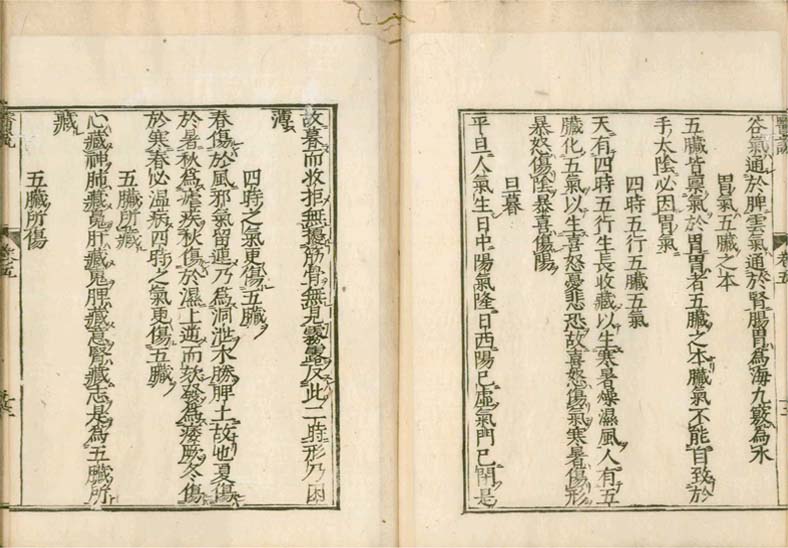 谷氣通於脾雲氣通於腎腸胃為海九竅為水
胃氣五臟之本
五臟皆稟氣於胃胃者五臟之本臟氣不能自致於
手太陰必因胃氣
四時五行五臟五氣
天有四時五行生長收藏以生寒暑燥濕風人有五
臟化五氣以生喜怒憂悲恐故喜怒傷氣寒暑傷形
暴怒傷陰暴喜傷陽
旦暮
平旦人氣生日中陽氣隆日西陽已虛氣門已閉是
故暮而收拒無擾筋骨無見霧露反此二時形乃困
薄
四時之氣更傷五臟
春傷於風邪氣留連乃為洞泄木勝脾土故也夏傷
於暑秋為瘧疾秋傷於濕上逆而欬發為痿厥冬傷
於寒春必温病四時之氣更傷五臟
五臟所藏
心藏神肺藏魄肝藏魂脾藏意腎藏志是為五臟所
藏
五臟所傷
醫說
卷五